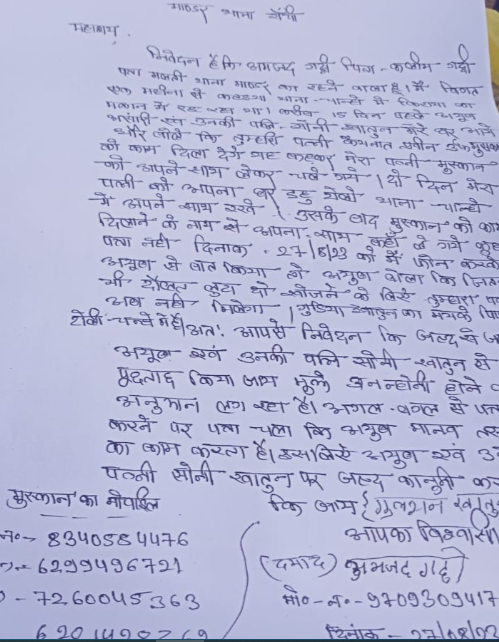 माण्डर थाना राँची
महाशय,
निवेदन है कि अमजद गद्दी पिता - कलीम गद्दी
पता मखली थाना माण्डर का रहने वाला है। मैं विगत
एक महीना से थाना - चान्हो में किराया का
मकान में रह रहा था। करीब 15 दिन पहले अयुब
अंसारी एवं उनकी पत्नि सोनी खातुन मेरे घर आये
और बोले कि तुम्हारी पत्नी
को काम दिला देंगे यह कहकर मेरा पत्नी मुस्कान
को अपने साथ लेकर चले गये। दो दिन मेरा
पत्नी को अपना घर थाना - चान्हो
में अपने साथ रखे। उसके बाद मुस्कान को काम
दिलाने के नाम से अपना साथ कहाँ ले गये कुछ
पता नहीं दिनांक - 27/8/23 को मैं फोन करके
अयुब से बात किया तो अयुब बोला कि जितना
भी दौलत लुटा दो खोजने के लिए तुम्हारा
अब नहीं मिलेगा। गुड़िया खातुन का
चान्हो में है। अतः आपसे निवेदन कि जल्द से
अयुब एवं उनकी पत्नि सोनी खातुन से
पुछताछ किया जाय मुझे अनहोनी होने
अनुमान लग रहा है। अगल-बगल से पता
करने पर पता चला कि अयुब मानव
का काम करता है। इसलिए अयुब एवं
पत्नी सोनी खातुन पर जल्द कानुनी
कि जाय। गुलशन
मुस्कान का मोबाईल
नं०- 8340584476
6299496721
7260045363
आपका विश्वासी
(दमाद) अमजद गद्दी
मो०-न०-9709309417
दिनांक - 27/08/